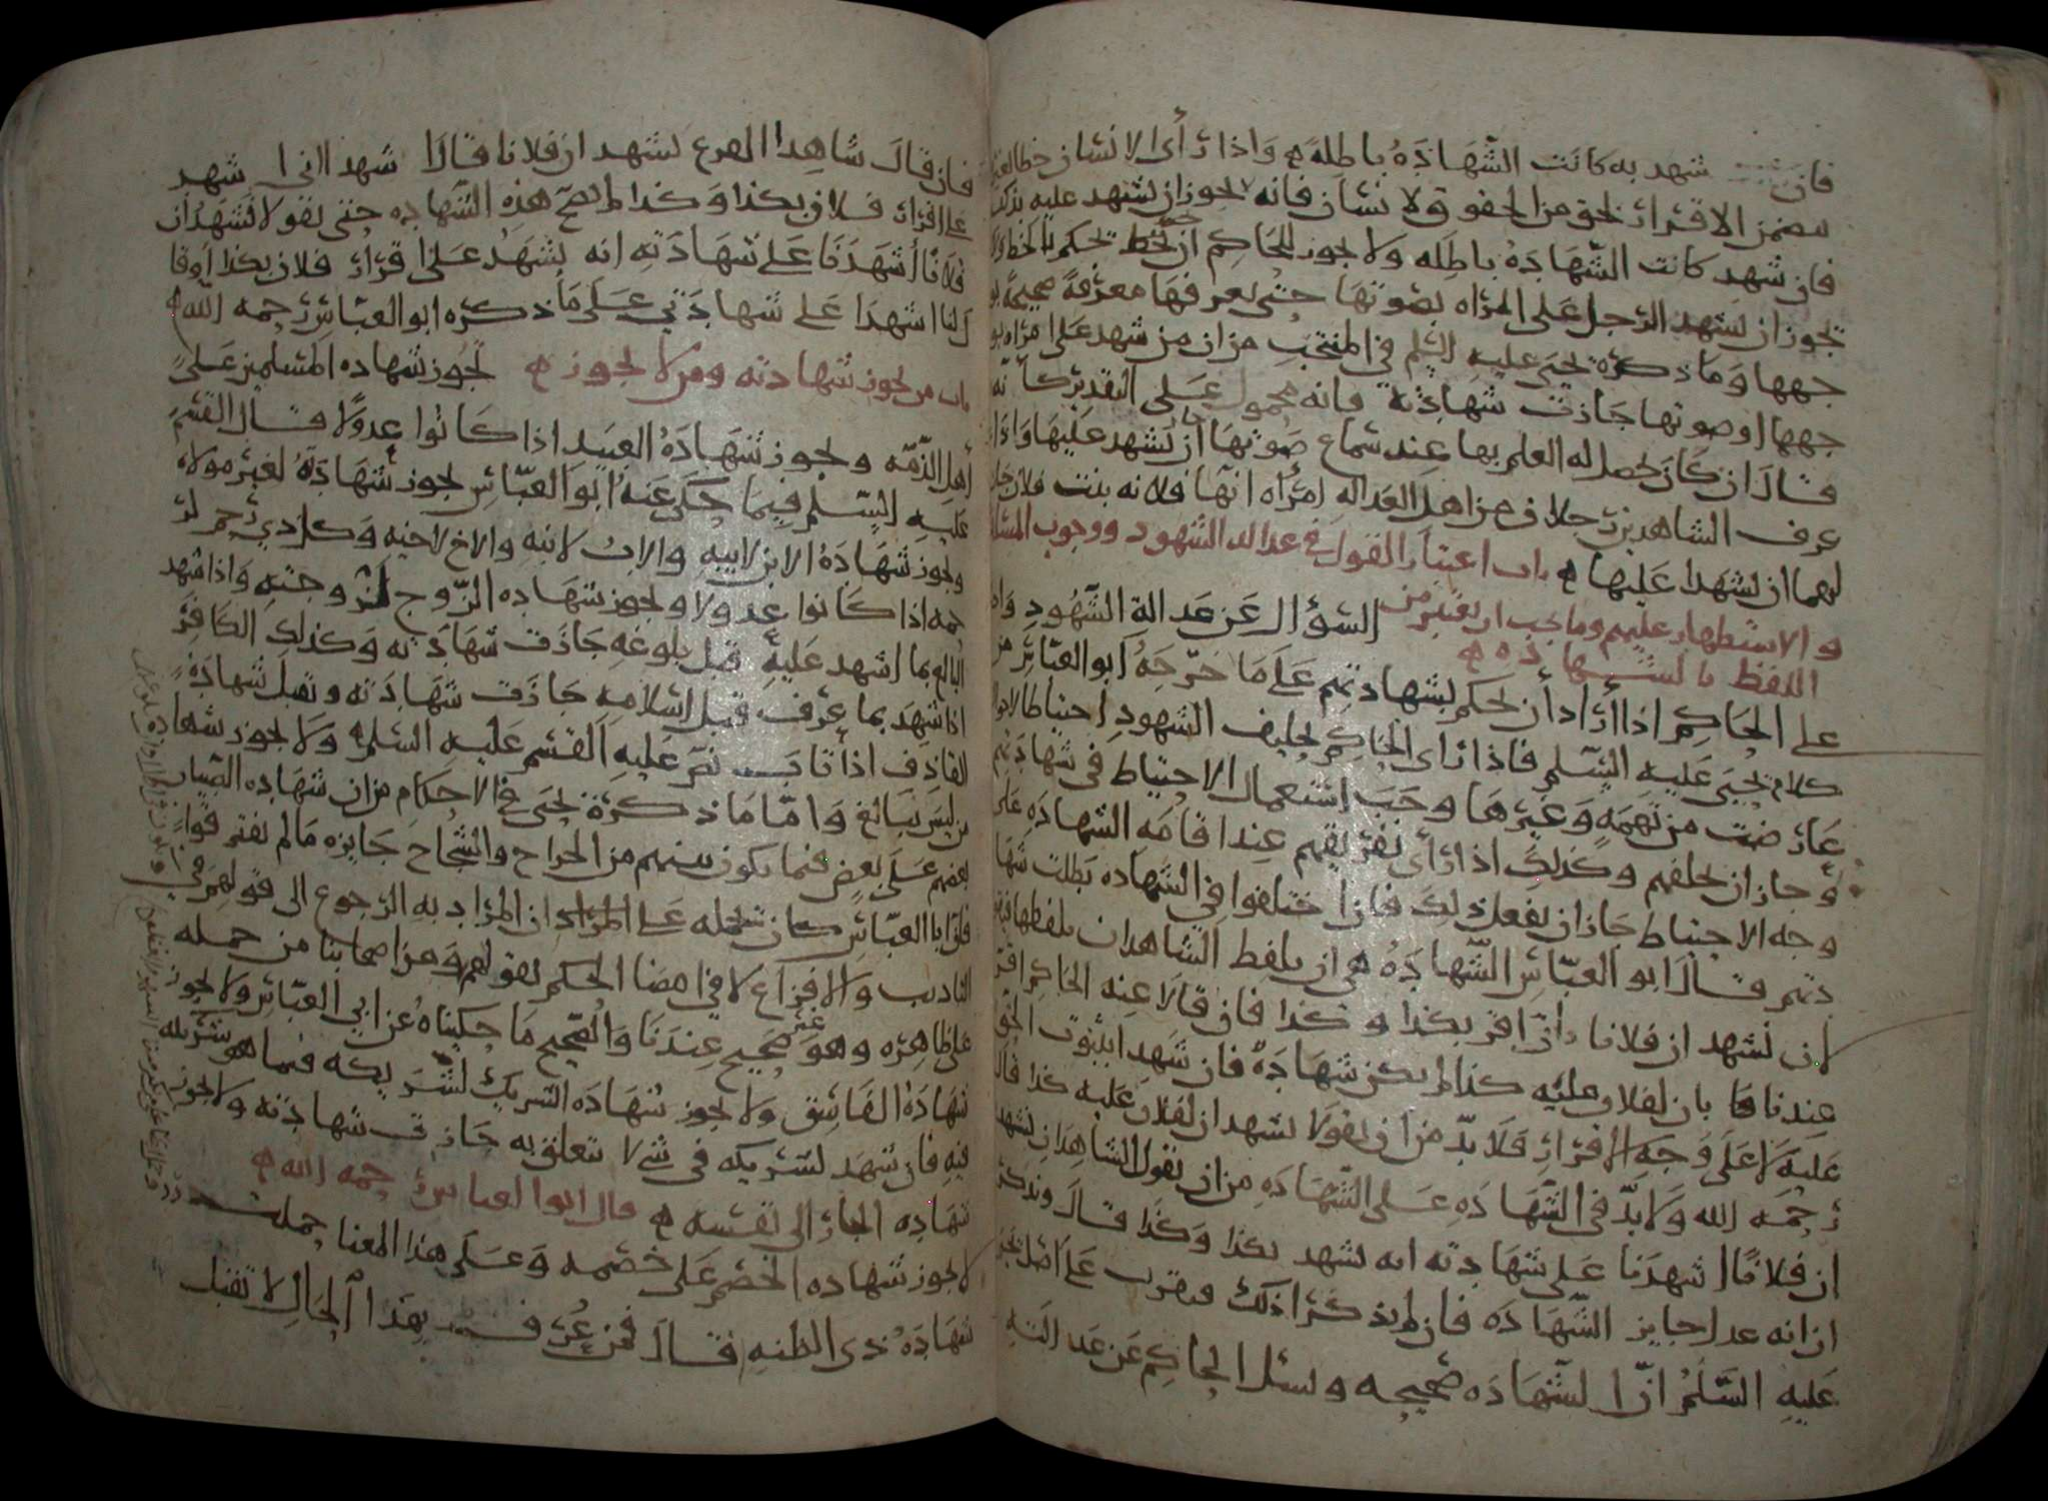 فان شهد به كانت الشهادة باطله واذا رأى الانسان خطا
يتضمن الاقرار بحق من الحقوق ولا نسان فانه لا يجوز ان يشهد عليه
فان شهد كانت الشهادة باطله ولا يجوز للحاكم ان يحكم بالخط
يجوز ان يشهد الرجل على المراه بصوتها حتى يعرفها معرفة صحيحة
جهها وما ذكره يحيى عليه السلم في المنتخب من ان من شهد على امراه
جهها او صوتها جازت شهادته فانه محمول على التقدير كانه
قال ان كان يحصل له العلم بها عند سماع صوتها ان يشهد عليها واذا
عرف الشاهدين رجلان من اهل العداله امرأه انها فلانه بنت فلان جاز
لهما ان يشهدا عليها باب اعتبار القول في عداله الشهود ووجوب المسئلة
والاستظهار عليهم وما يجب ان يعتبر من السؤال عن عدالة الشهود
اللفظ بالشهاده
على الحاكم اذا أراد أن يحكم بشهادتهم على ما خرجه ابو العباس من
كلام يحيى عليه السلم فاذا رأى الحاكم تحليف الشهود احتياطا
عارضت من تهمه وغيرها وجب استعمال الاحتياط في شهادتهم
وجاز ان يحلفهم وكذلك اذا رأى تفريقهم عند اقامه الشهاده على
وجه الاحتياط جاز ان يفعل ذلك فان اختلفوا في الشهاده بطلت شها
دتهم قال ابو العباس الشهادة هي ان يلفظ الشاهدان بلفظها
لان نشهد ان فلانا اقر بكذا وكذا فان قالا عنه الحاكم
عندنا بان لفلان عليه كذا لم يكن شهادة فان شهدا بثبوت الحق
عليه لا على وجه الاقرار فلا بد من ان يقولا نشهد ان لفلان عليه كذا قال
رحمه الله ولا بد في الشهاده على الشهاده من ان يقول الشاهدان نشهد
ان فلانا اشهدنا على شهادته انه يشهد بكذا وكذا قال
ان انه عدل جايز الشهاده فان لم يذكرا ذلك فيقرب على اصل يحيى
عليه السلم ان الشهاده صحيحه ويسئل الحاكم عن عدالته
فان قال شاهدا الفرع نشهد ان فلانا قال اشهدا اني اشهد
على اقرار فلان بكذا وكذا لم تصح هذه الشهاده حتى يقولا نشهد ان
فلانا أشهدنا على شهادته انه يشهد على اقرار فلان بكذا او قا
ل لنا اشهدا على شهادتي على ما ذكره ابو العباس رحمه الله
باب من تجوز شهادته ومن لا تجوز تجوز شهاده المسلمين على
أهل الذمه وتجوز شهادة العبيد اذا كانوا عدولا قال القسم
عليه السلم فيما حكى عنه ابو العباس تجوز شهادته لغير مولاه
وتجوز شهادة الابن لابيه والاب لابنه والاخ لاخيه وكل ذي رحم لر
حمه اذا كانوا عدولا وتجوز شهاده الزوج لزوجته واذا شهد
البالغ بما اشهد عليه قبل بلوغه جازت شهادته وكذلك الكافر
اذا شهد بما عرف قبل اسلامه جازت شهادته وتقبل شهادة
القاذف اذا تاب نص عليه القسم عليه السلم ولا تجوز شهاده
من ليس ببالغ واما ما ذكره يحيى في الاحكام من ان شهاده الصبيان
بعضهم على بعض فيما يكون بينهم من الجراح والشجاج جايزه ما لم يفترقوا
فان ابا العباس كان يحمله على ان المراد به الرجوع الى قولهم في
التاديب والافزاع لا في امضا الحكم بقولهم ومن اصحابنا من حمله
على ظاهره وهو غير صحيح عندنا والصحيح ما حكيناه عن ابي العباس ولا تجوز
شهادة الفاسق ولا تجوز شهادة الشريك لشريكه فيما هو شريكه
فيه فان شهد لشريكه في شي لا يتعلق به جازت شهادته ولا تجوز
شهاده الجار الى نفسه قال ابو العباس رحمه الله
لا تجوز شهاده الخصم على خصمه وعلى هذا المعنا حملت
شهادة ذي الظنه قال فمن عرف بهذا الحال لا تقبل